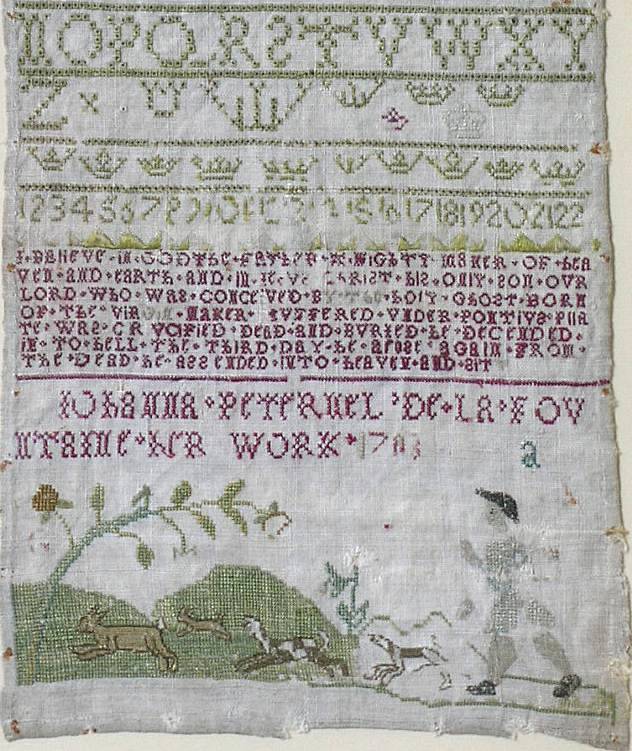 NOPQRSTVWXY
Z x
1 2 3 4 5 6 7 8 9 10 17 18 19 20 21 22
I BELIEVE IN GOD THE FATHER MIGHTY MAKER OF HEA
VEN AND EARTH AND IN CHRIST HIS ONLY SON OVR
LORD WHO WAS CONCEIVED BY THE HOLY GHOST BORN
OF THE SVFFERED VNDER PONTIVS PILA
TE WAS CRVCIFIED DEAD AND BVRIED HE DECENDED
IN TO HELL THE THIRD DAY HE AROSE AGAIN FROM
THE DEAD HE ASSENDED INTO HEAVEN AND SIT
IOHANNA PETERNEL DE LA FOV
NTAINE HER WORK
a